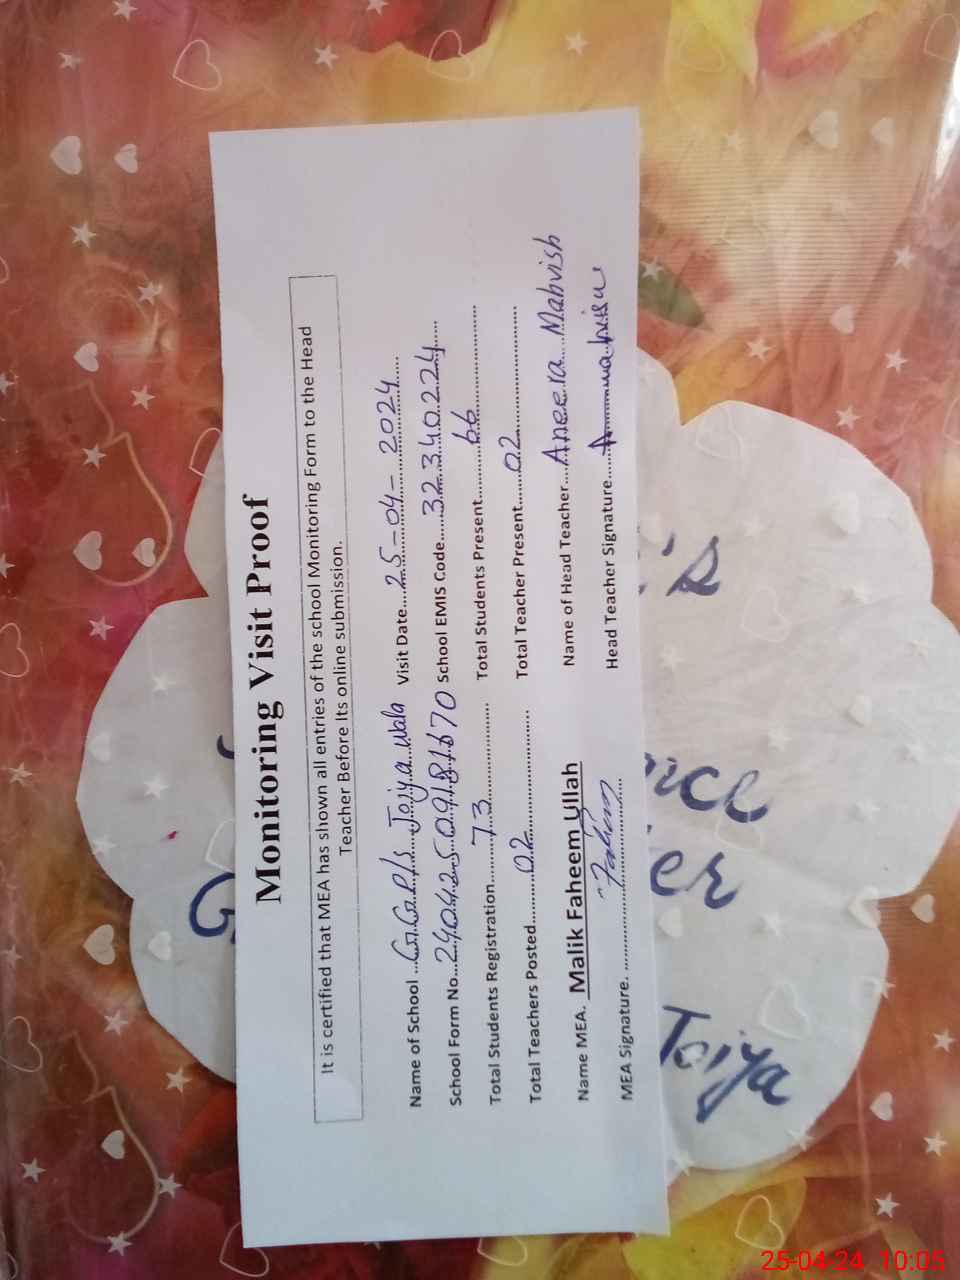 Monitoring Visit Proof
It is certified that MEA has shown all entries of the school Monitoring Form to the Head
Teacher Before Its online submission.
Name of School ...G.G.P/S Joiya wala Visit Date....25-04-2024
School Form No... School EMIS Code.....32340224
Total Students Registration..........73.......... Total Students Present..........66..........
Total Teachers Posted..........02.......... Total Teacher Present......02..........
Name MEA. Malik Faheem Ullah Name of Head Teacher...Aneera Mahvish
MEA Signature. Faheem Head Teacher Signature.....
's
nce
er
Joiya
25-04-24 10:05